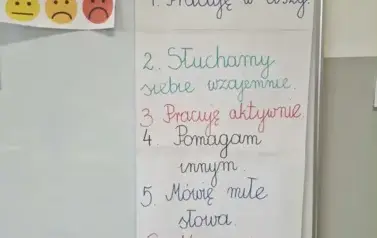 1. Pracuję w ciszy.
2. Słuchamy
siebie wzajemnie.
3. Pracuję aktywnie.
4. Pomagam
innym.
5. Mówię miłe
słowa.